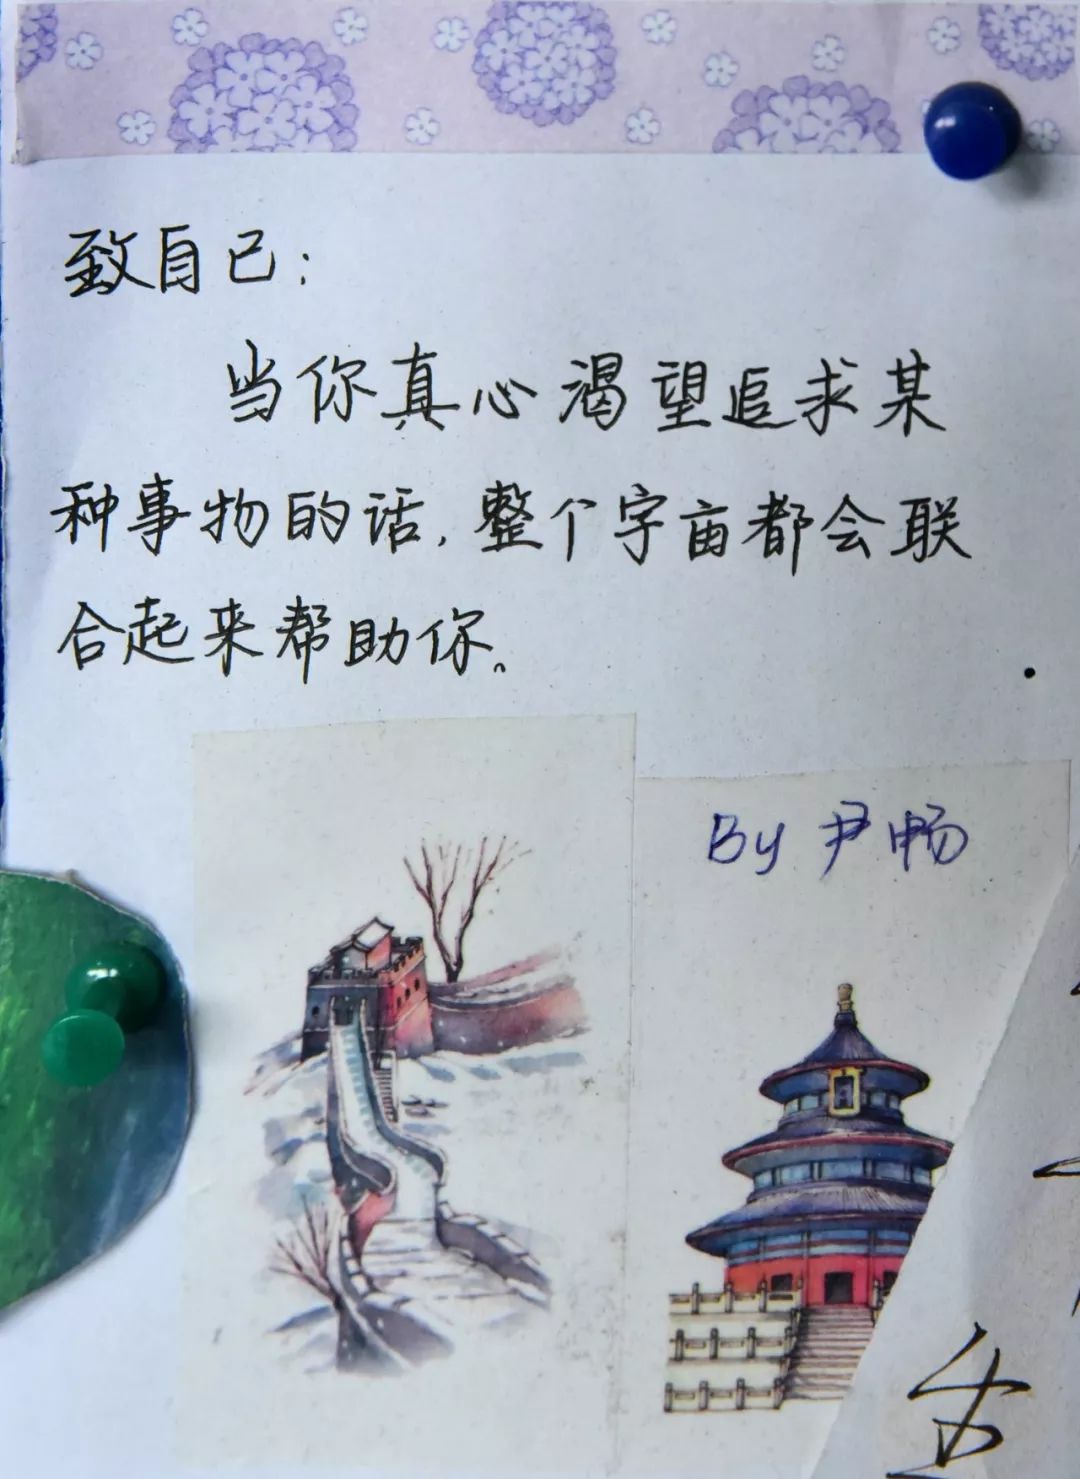 致自己：
当你真心渴望追求某
种事物的话，整个宇宙都会联
合起来帮助你。
By 尹畅